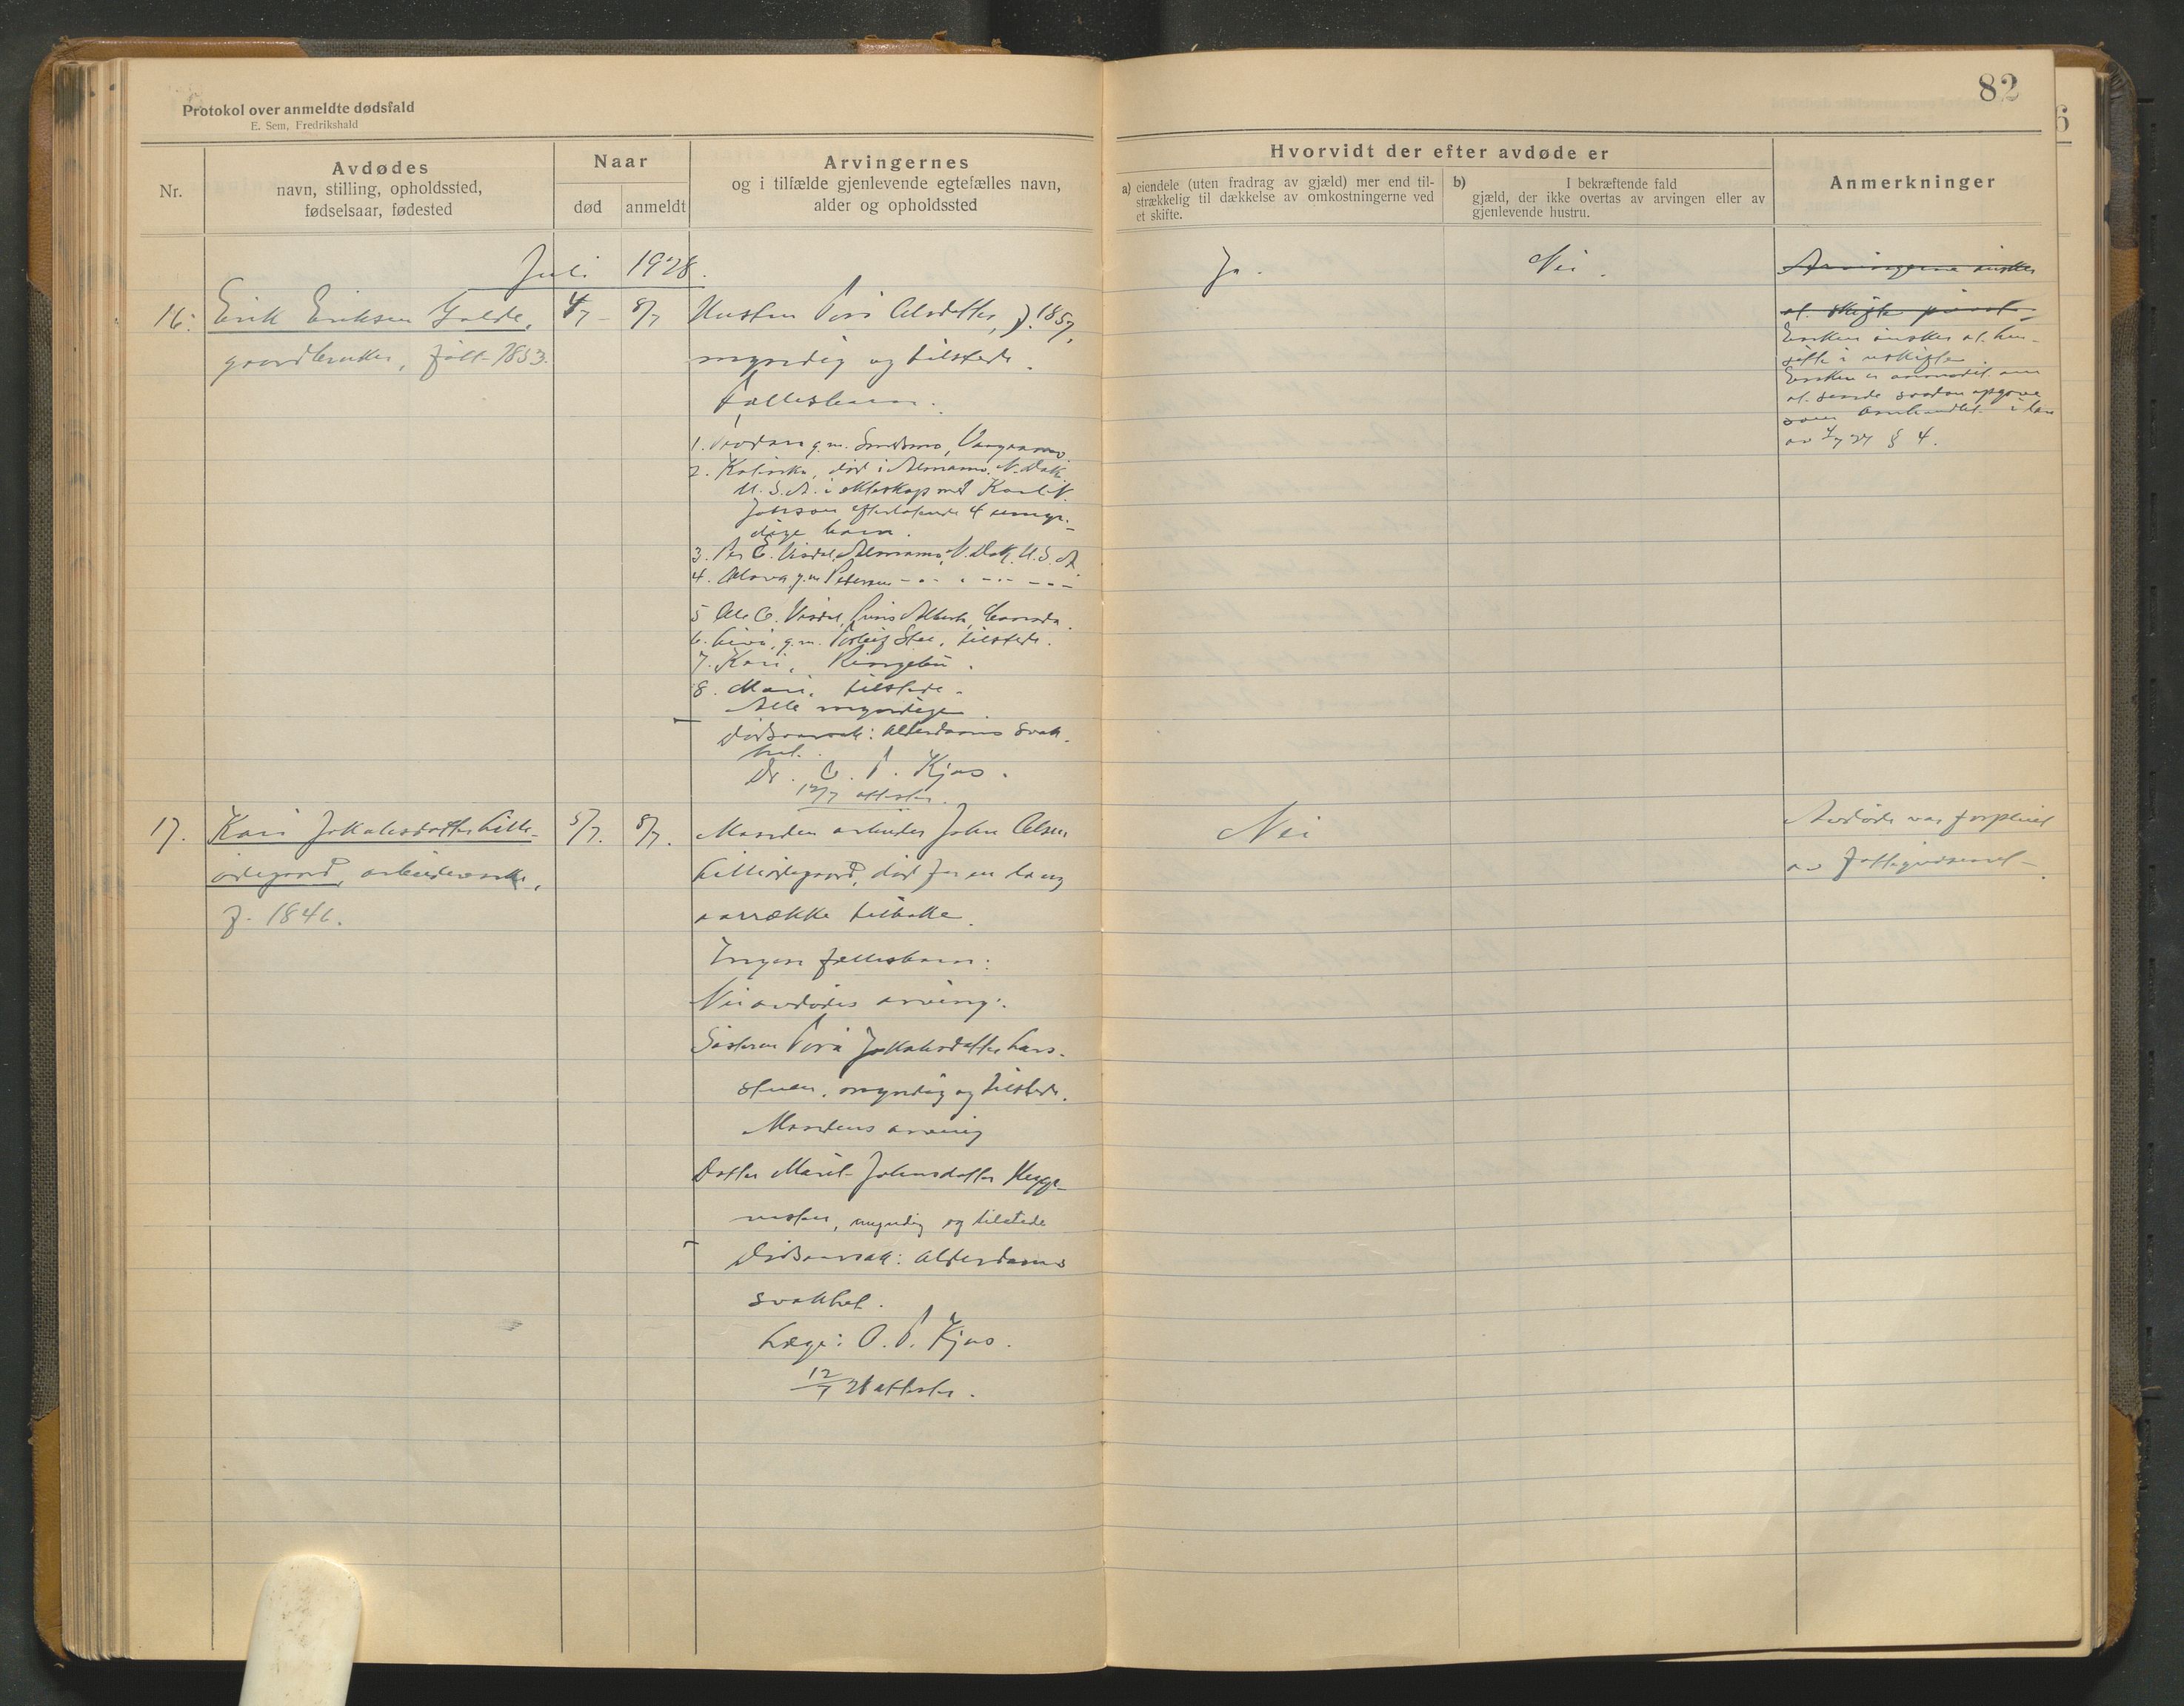 82
Protokol over anmeldte dødsfald
E. Sem, Fredrikshald
Nr.
Avdødes
navn, stilling, opholdssted,
fødselsaar, fødested
Naar
død
anmeldt
Arvingernes
og i tilfælde gjenlevende egtefælles navn,
alder og opholdssted
Hvorvidt der efter avdøde er
a) eiendele (uten fradrag av gjæld) mer end til-
strækkelig til dækkelse av omkostningerne ved
et skifte.
b) I bekræftende fald
gjæld, der ikke overtas av arvingen eller av
gjenlevende hustru.
Anmerkninger
Juli 1928.
16.
Erik Eriksen Galde,
gaardbruker, født 1853.
4/7
8/7
Hustru Tori Olsdatter, f. 1857,
myndig og tilstede.
Fællesbarn:
1. g.m.
2. død i N. Dak.
U.S.A. i ekteskap med Karl N.
Johnson efterlatende 4 umyn-
dige barn.
3. Per E. N. Dak. U.S.A
4. g.m. Peterson
5 Ole E. Prins Albert, Canada.
6. g.m. tilstede.
7. Kari, Ringebu.
8. Mari, tilstede.
Alle myndige.
Dødsaarsak: Alderdoms svak-
het.
Dr. O. T. Kjos.
12/7 attester.
Ja.
Nei.
Arvingerne ønsker
at skifte privat.
Enken ønsker at hen-
sitte i uskifte.
Enken er anmodet om
at sende saadan opgave
som omhandlet i lov
av § 4.
17.
Kari Jakobsdatter Lille-
ødegaard, arbeiderenke,
f. 1846.
5/7.
8/7.
Manden arbeider John Olsen
Lilleødegaard, død for en lang
aarrække tilbake.
Ingen fællesbarn:
avdødes arving:
Søsteren Tora Jakobsdatter Lars-
stuen, myndig og tilstede.
Mandens arving
Datter Marit Johnsdatter Hegge-
myndig og tilstede
Dødsaarsak: Alderdoms
svakhet.
Læge: O. T. Kjos.
12/7 28 attester.
Nei
Avdøde var forpleiet
av fattigvæsenet.